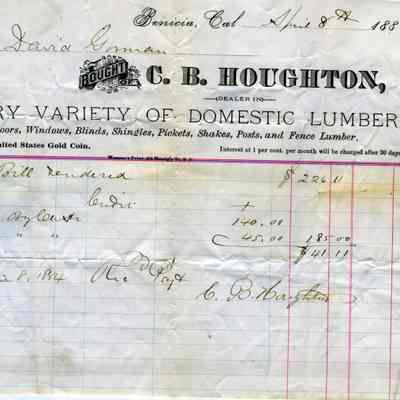 Benicia, Cal April 8th 188
David Gorman
BOUGHT OF
C. B. HOUGHTON,
DEALER IN
RY VARIETY OF DOMESTIC LUMBER
oors, Windows, Blinds, Shingles, Pickets, Shakes, Posts, and Fence Lumber.
nited States Gold Coin. Interest at 1 per cent. per month will be charged after 30 days
Bill rendered $ 226.11
Credit
By Cash 140.00
" " 45.00 185.00
$ 41.11
8, 1884 Rec'd Pay't
C. B. Houghton